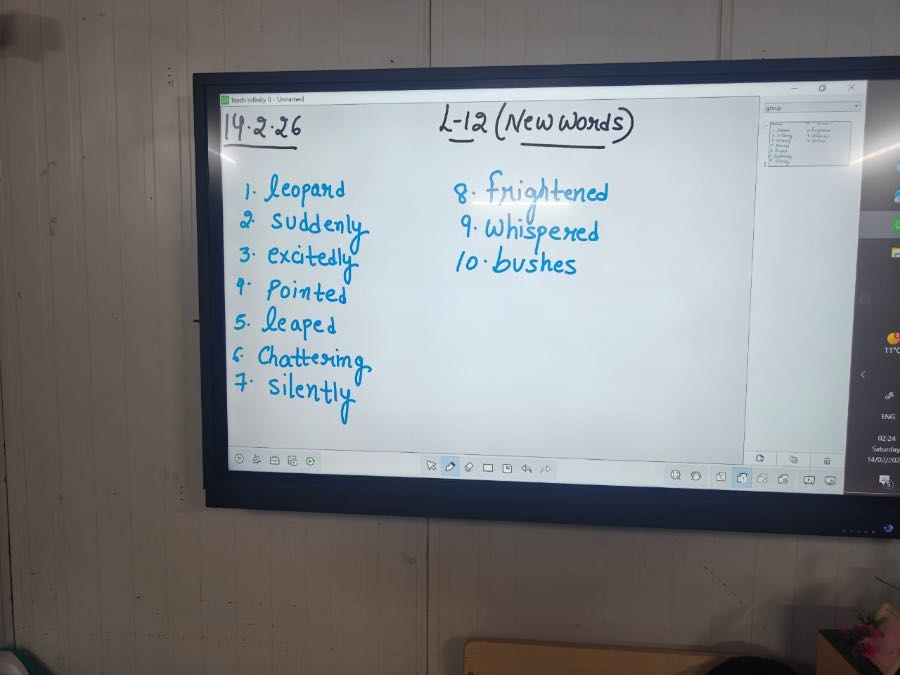 Teach Infinity II - Unnamed
14.2.26
L-12 (New words)
1. leopard
2. suddenly
3. excitedly
4. Pointed
5. leaped
6. Chattering
7. silently
8. frightened
9. whispered
10. bushes
group
11°C
ENG
02:24
Saturday
14/02/202